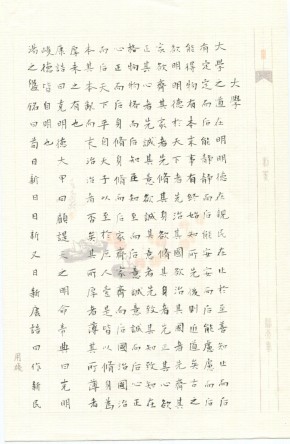 大學
大學之道在明明德在親民在止於至善知止而后
有定定而后能靜靜而后能安安而后能慮慮而后
能得物有本末事有終始知所先後則近道矣古之
欲明明德於天下者先治其國欲治其國者先齊其
家欲齊其家者先脩其身欲脩其身者先正其心欲
正其心者先誠其意欲誠其意者先致其知致知在
格物物格而后知至知至而后意誠意誠而后心正
心正而后身脩身脩而后家齊家齊而后國治國治
而后天下平自天子以至於庶人壹是皆以脩身為
本其本亂而末治者否矣其所厚者薄而其所薄者
厚未之有也
康誥曰克明德大甲曰顧諟天之明命帝典曰克明
峻德皆自明也
湯之盤銘曰苟日新日日新又日新康誥曰作新民